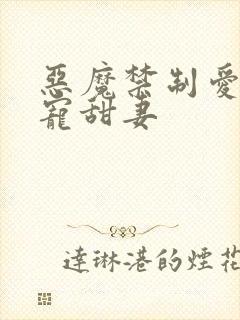 惡魔禁制愛
寵甜妻
達琳港的煙花